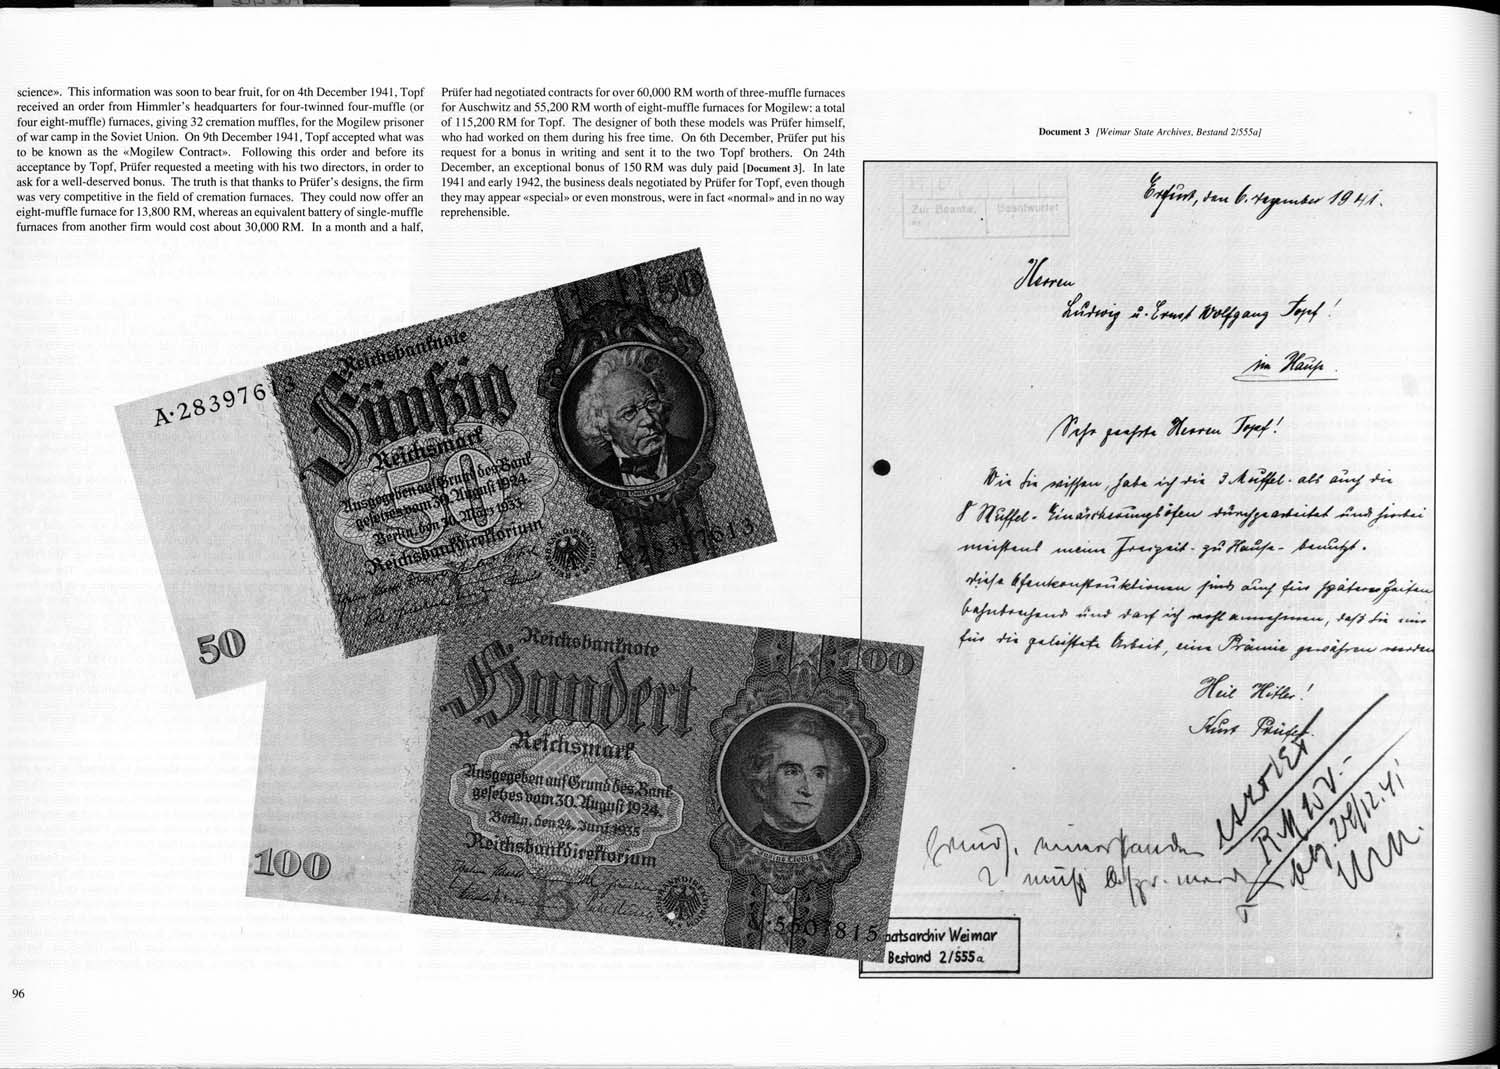 science». This information was soon to bear fruit, for on 4th December 1941, Topf
received an order from Himmler's headquarters for four-twinned four-muffle (or
four eight-muffle) furnaces, giving 32 cremation muffles, for the Mogilew prisoner
of war camp in the Soviet Union. On 9th December 1941, Topf accepted what was
to be known as the «Mogilew Contract». Following this order and before its
acceptance by Topf, Prüfer requested a meeting with his two directors, in order to
ask for a well-deserved bonus. The truth is that thanks to Prüfer's designs, the firm
was very competitive in the field of cremation furnaces. They could now offer an
eight-muffle furnace for 13,800 RM, whereas an equivalent battery of single-muffle
furnaces from another firm would cost about 30,000 RM. In a month and a half,
Prüfer had negotiated contracts for over 60,000 RM worth of three-muffle furnaces
for Auschwitz and 55,200 RM worth of eight-muffle furnaces for Mogilew: a total
of 115,200 RM for Topf. The designer of both these models was Prüfer himself,
who had worked on them during his free time. On 6th December, Prüfer put his
request for a bonus in writing and sent it to the two Topf brothers. On 24th
December, an exceptional bonus of 150 RM was duly paid [Document 3]. In late
1941 and early 1942, the business deals negotiated by Prüfer for Topf, even though
they may appear «special» or even monstrous, were in fact «normal» and in no way
reprehensible.
50
Reichsbanknote
A·28397613
Fünfzig
Reichsmark
50
Ausgegeben auf Grund des Bank
gesetzes vom 30. August 1924.
Berlin, den 30. März 1933
Reichsbankdirektorium
A·28397613
50
Reichsbanknote
100
Hundert
Reichsmark
Ausgegeben auf Grund des Bank
gesetzes vom 30. August 1924.
Berlin, den 24. Juni 1935
Reichsbankdirektorium
Justus Liebig
100
5507815
Document 3 [Weimar State Archives, Bestand 2/555a]
Zur Beantw. Beantwortet
Erfurt, den 6. Dezember 1941.
Herren
Ludwig u. Ernst Wolfgang Topf!
im Hause.
Sehr geehrte Herren Topf!
Wie Sie wissen, habe ich die 3 Muffel- als auch die
8 Muffel-Einäscherungsöfen durchgearbeitet und hierbei
meistens meine Freizeit - zu Hause - benutzt.
Diese Ofenkonstruktionen sind auch für spätere Zeiten
bahnbrechend und darf ich wohl annehmen, daß Sie mir
für die geleistete Arbeit, eine Prämie gewähren werden
Heil Hitler!
Kurt Prüfer.
RM 150.-
24/12.41
einverstanden
muß
aatsarchiv Weimar
Bestand 2/555a
96